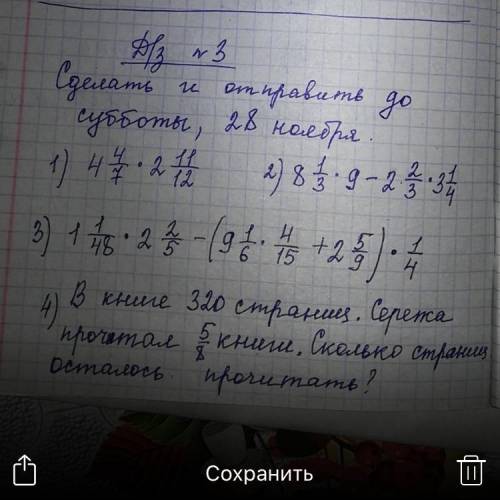 Д/з №3
Сделать и отправить до
субботы, 28 ноября.
1) 4 4/7 · 2 11/12 2) 8 1/3 · 9 - 2 2/3 · 3 1/4
3) 1 1/48 · 2 2/5 - (9 1/6 · 4/15 + 2 5/9) · 1/4
4) В книге 320 страниц. Сережа
прочитал 5/8 книги. Сколько страниц
осталось прочитать?
Сохранить